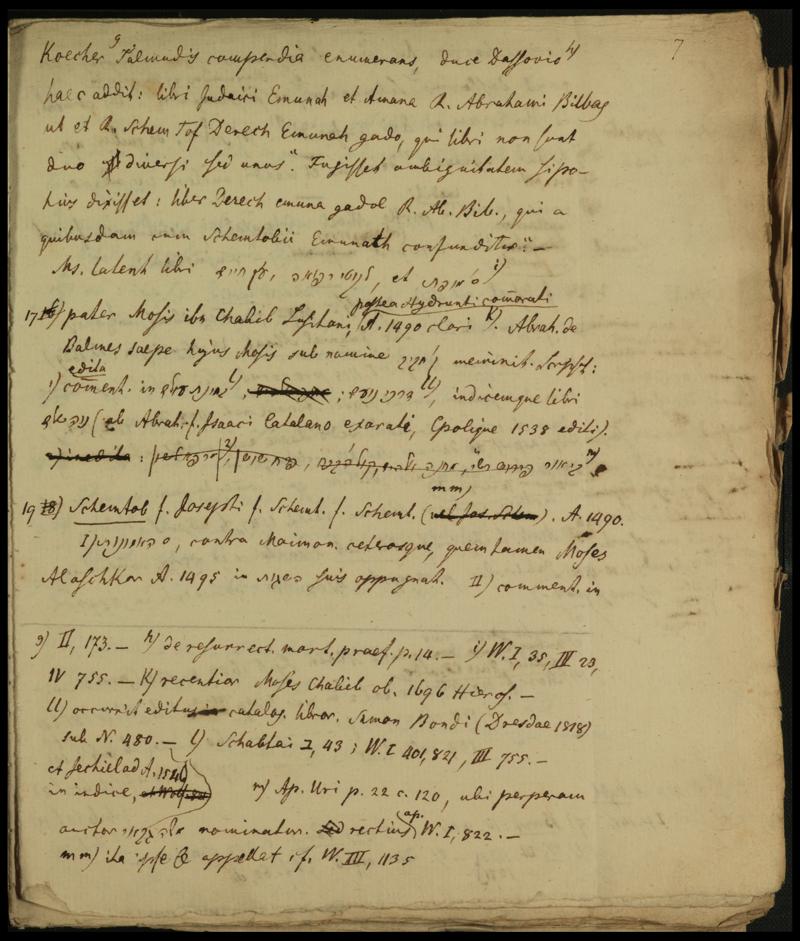 7
Koecher g) Talmudis compendia enumerans, duce Dassovio h)
haec addit: libri Judaici Emunah et Amana R. Abrahami Bilbag
ut et R. Schem Tof Derech Emunah gado, qui libri non sunt
duo diversi sed unus". Fugisset ambiguitatem si po-
tius dixisset: liber Derech emuna gadol R. Ab. Bib., qui a
quibusdam cum Schemtobii Emunath confunditur".—
Ms. latent libri עץ חיים, et i)
postea Hydrunti comorati
17) pater Mosis ibn Chabib Lusitani, A. 1490 clari k). Abrah. de
Balmes saepe hujus Mosis sub nomine meminit. Scripsit:
edita
1) coment. in l) ; דרכי נועם ll), indicemque libri
(ab Abrah. f. Isaaci Catalano exarati, Cpolique 1538 editi).
2) inedita : פרח שושן, m)
mm)
19) Schemtob f. Josephi f. Schemt. f. Schemt. A. 1490.
I) האמונות, contra Maimon. ceterosque, quem tamen Moses
Alaschkar A. 1495 in השגות suis oppugnat. II) comment. in
g) II, 173.— h) de resurrect. mort. praef. p. 14.— i) W. I, 35, III 23,
IV 755.— k) recentior Moses Chabib ob. 1696 Hieros.—
ll) occurrit editus catalog. libror. Simon Bondi (Dresdae 1818)
sub N. 480.— l) Schabtai 2, 43; W. I 401, 821, III 755.—
et Jechielad A. 1546
in indice, m) Ap. Uri p. 22 c. 120, ubi perperam
auctor nominatur. rectius ap. W. I, 822.—
mm) ita ipse se appellat cf. W. III, 1135